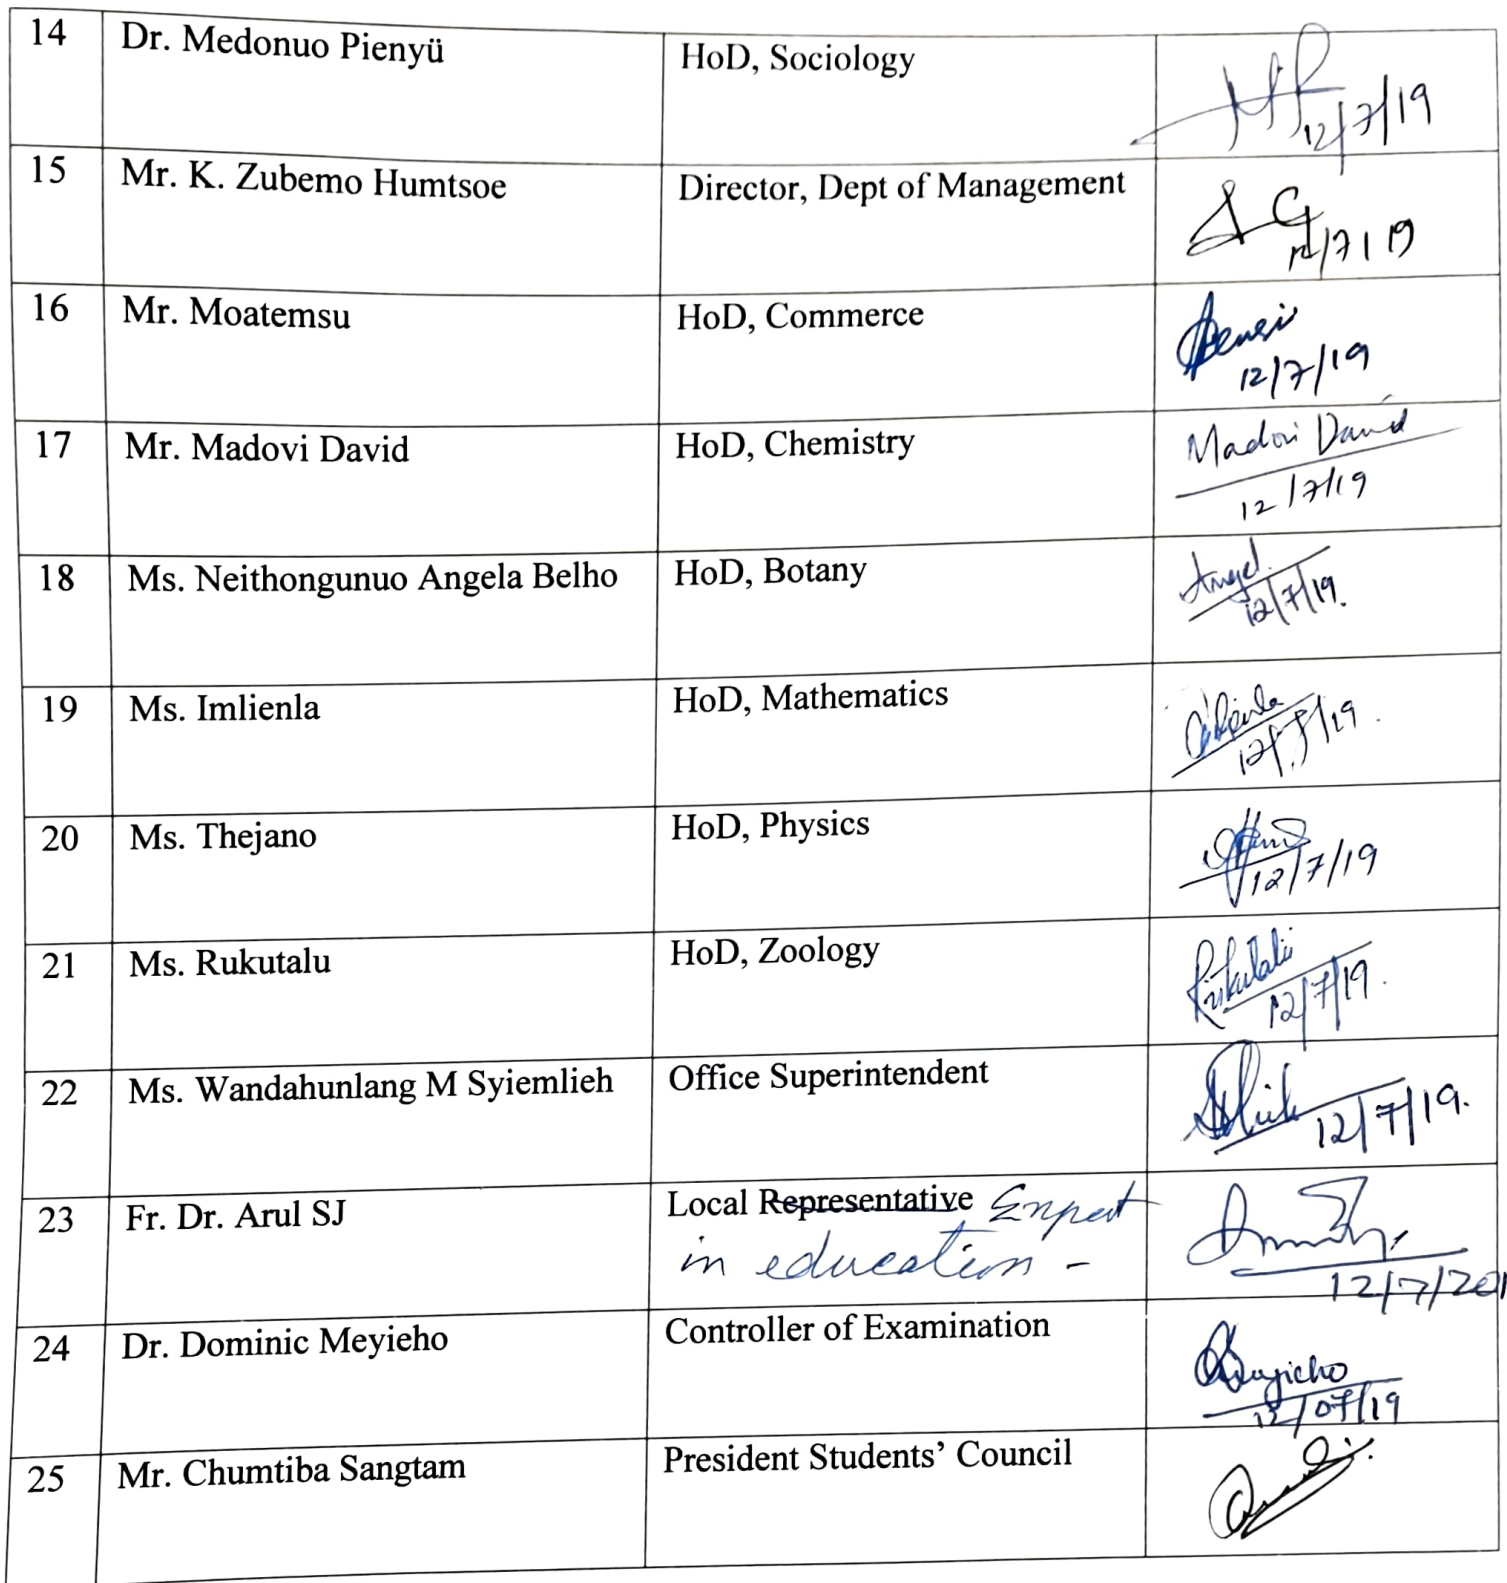 14 Dr. Medonuo Pienyü HoD, Sociology 12/7/19
15 Mr. K. Zubemo Humtsoe Director, Dept of Management 12/7/19
16 Mr. Moatemsu HoD, Commerce
12/7/19
17 Mr. Madovi David HoD, Chemistry Madovi David
12/7/19
18 Ms. Neithongunuo Angela Belho HoD, Botany Angel
12/7/19.
19 Ms. Imlienla HoD, Mathematics
12/7/19.
20 Ms. Thejano HoD, Physics
12/7/19
21 Ms. Rukutalu HoD, Zoology Rukutalu
12/7/19.
22 Ms. Wandahunlang M Syiemlieh Office Superintendent 12/7/19.
23 Fr. Dr. Arul SJ Local Representative Expert
in education -
12/7/201
24 Dr. Dominic Meyieho Controller of Examination
12/07/19
25 Mr. Chumtiba Sangtam President Students' Council